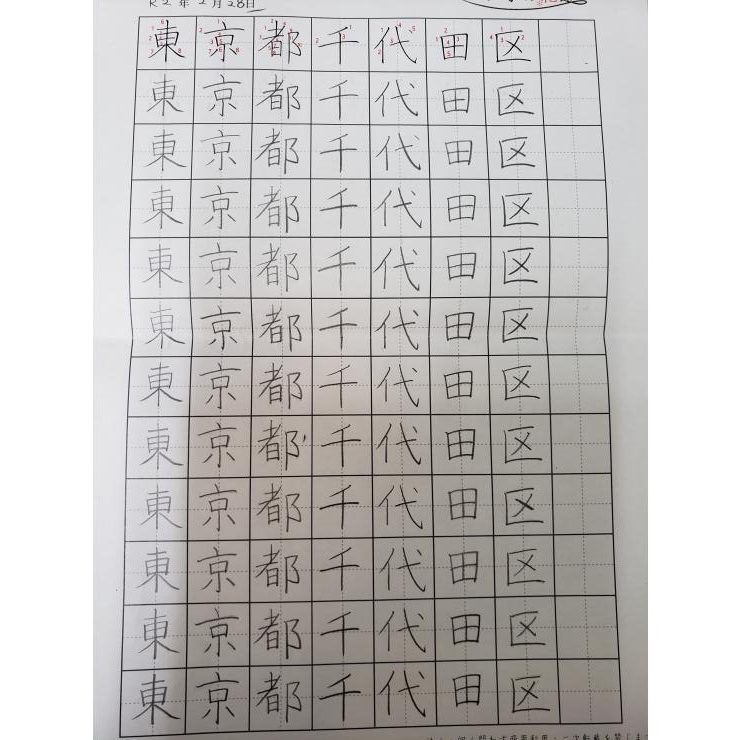 R2年2月28日
東京都千代田区
東京都千代田区
東京都千代田区
東京都千代田区
東京都千代田区
東京都千代田区
東京都千代田区
東京都千代田区
東京都千代田区
東京都千代田区
東京都千代田区
東京都千代田区